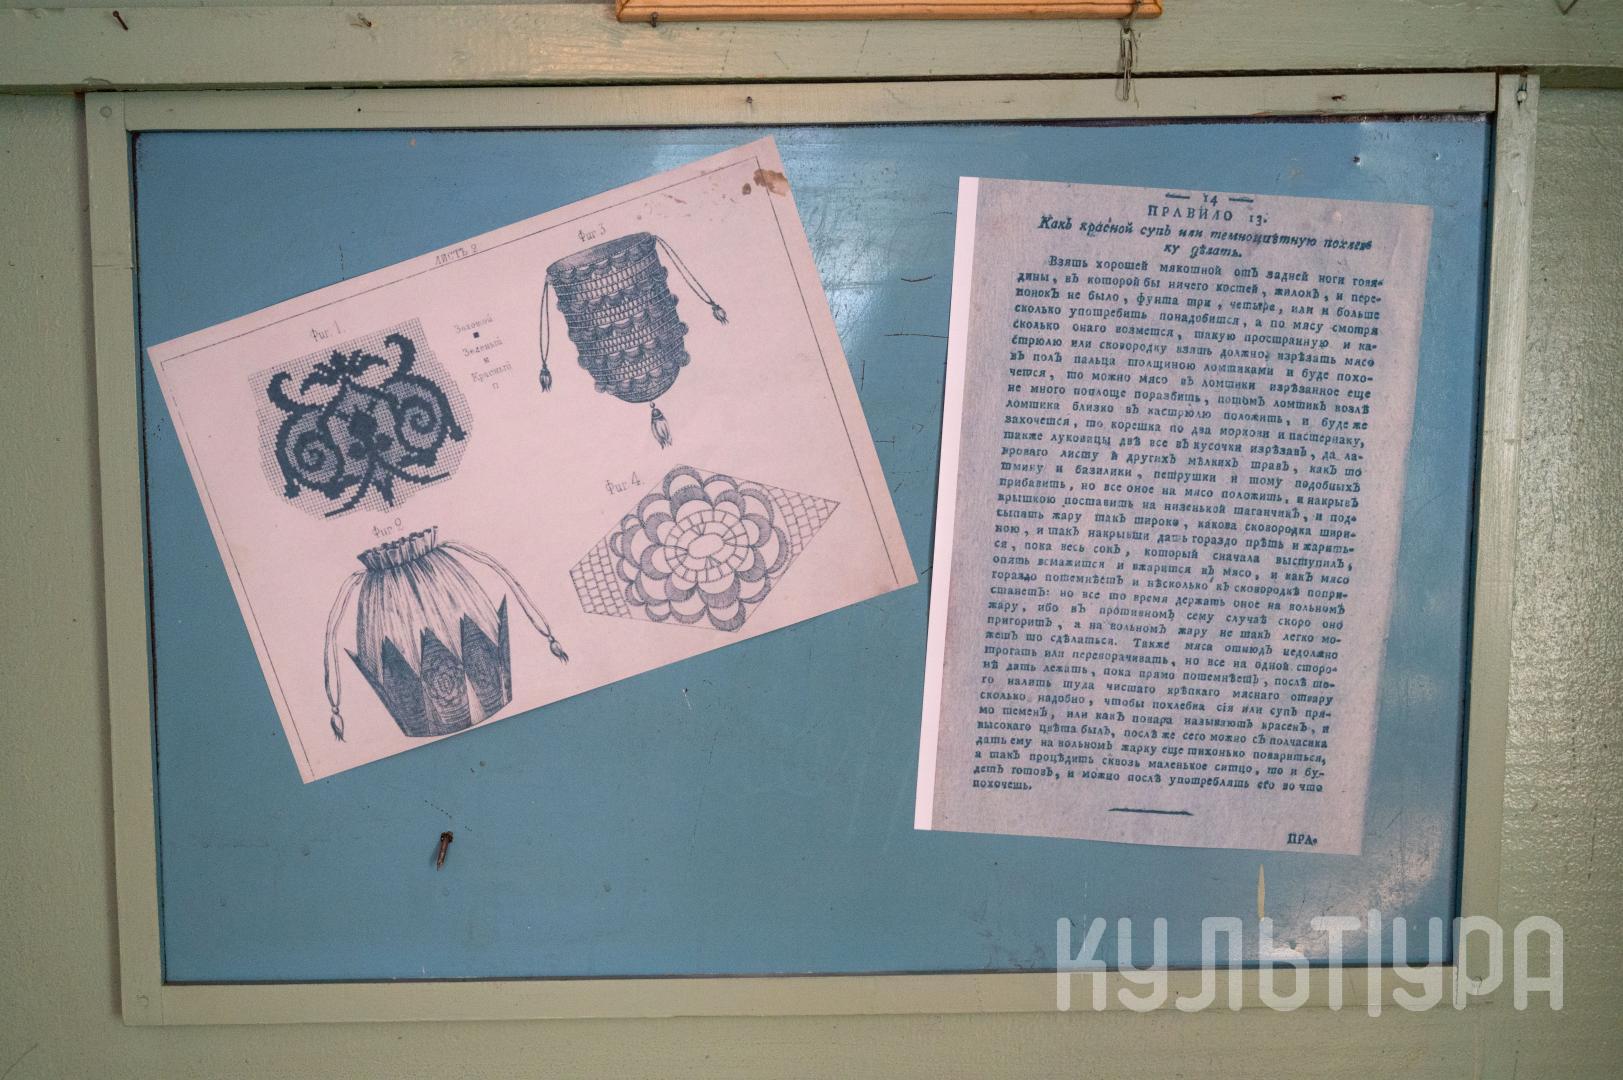 ЛИСТЪ 2
Фиг. 1.
Золотой
Зеленый
Красный
п
Фиг. 2
Фиг 3
Фиг. 4.
14
ПРАВИЛО 13.
Какъ красной супъ или темноцвѣтную похлеб-
ку дѣлать.
Взять хорошей мякотной отъ задней ноги говя-
дины, въ которой бы ничего костей, жилокъ, и пере-
понокъ не было, фунта три, четыре, или и больше
сколько употребить понадобится, а по мясу смотря
сколько онаго возмется, такую пространную и ка-
стрюлю или сковородку взять должно; изрѣзать мясо
въ полъ пальца толщиною ломтиками и буде похо-
чется, то можно мясо въ ломтики изрѣзанное еще
не много поплоще поразбить, потомъ ломтикъ возлѣ
ломтика близко въ кастрюлю положить, и буде же
захочется, то корешка по два моркови и пастернаку,
также луковицы двѣ все въ кусочки изрѣзавъ, да ла-
вроваго листу и другихъ мѣлкихъ травъ, какъ то
тмину и базилики, петрушки и тому подобныхъ
прибавить, но все оное на мясо положить, и накрывъ
крышкою поставить на низенькой таганчикъ, и под-
сыпать жару такъ широко, какова сковородка шири-
ною, и такъ накрывши дать гораздо прѣть и жарить-
ся, пока весь сокъ, который сначала выступилъ,
опять всмажится и вжарится въ мясо, и какъ мясо
гораздо потемнѣетъ и нѣсколько къ сковородкѣ попри-
станетъ: но все то время держать оное на вольномъ
жару, ибо въ противномъ сему случаѣ скоро оно
пригоритъ, а на вольномъ жару не такъ легко мо-
жетъ то сдѣлаться. Также мяса отнюдь недолжно
трогать или переворачивать, но все на одной сторо-
нѣ дать лежать, пока прямо потемнѣетъ, послѣ то-
го налить туда чистаго крѣпкаго мяснаго отвару
сколько надобно, чтобы похлебка сія или супъ пря-
мо теменъ, или какъ повара называютъ красенъ, и
высокаго цвѣта былъ, послѣ же сего можно съ полчасика
дать ему на вольномъ жарку еще тихонько повариться,
а такъ процѣдить сквозь маленькое ситцо, то и бу-
детъ готовъ, и можно послѣ употреблять его во что
похочешь.
ПРА-
КУЛЬТУРА